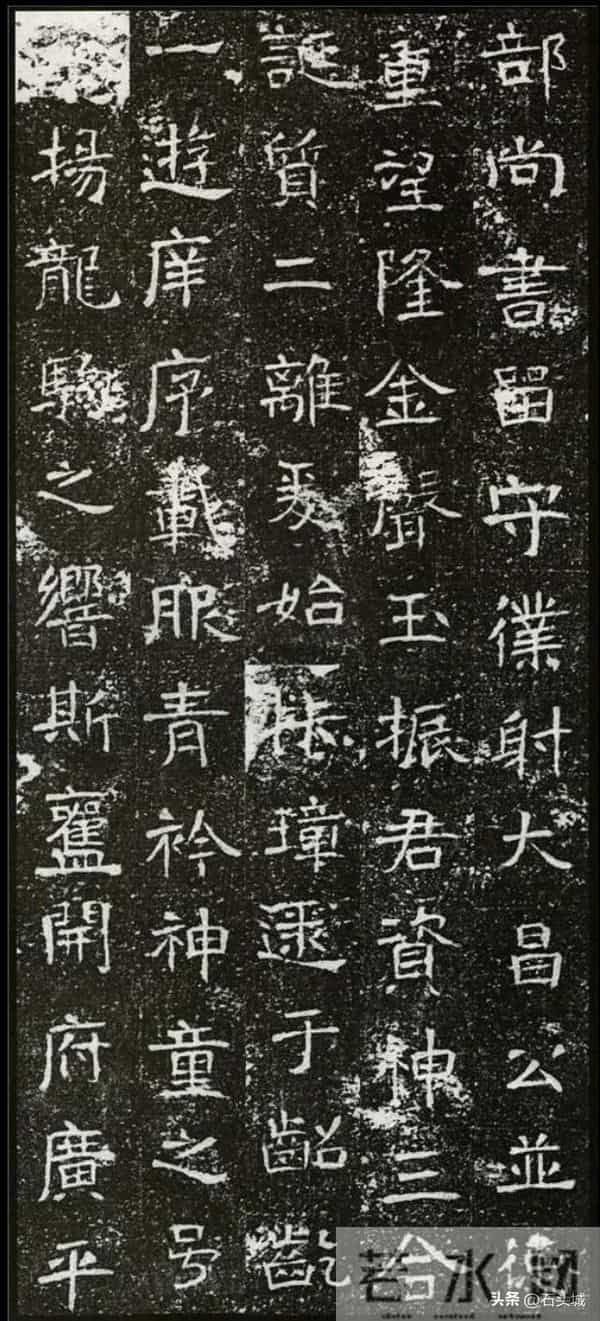 部尚書留守僕射大昌公並德
重望隆金聲玉振君資神三合
誕質二離爰始璋遝于齠齔
一遊庠序載服青衿神童之号
揚龍駒之響斯開府廣平
若水阁
头条 @石头城